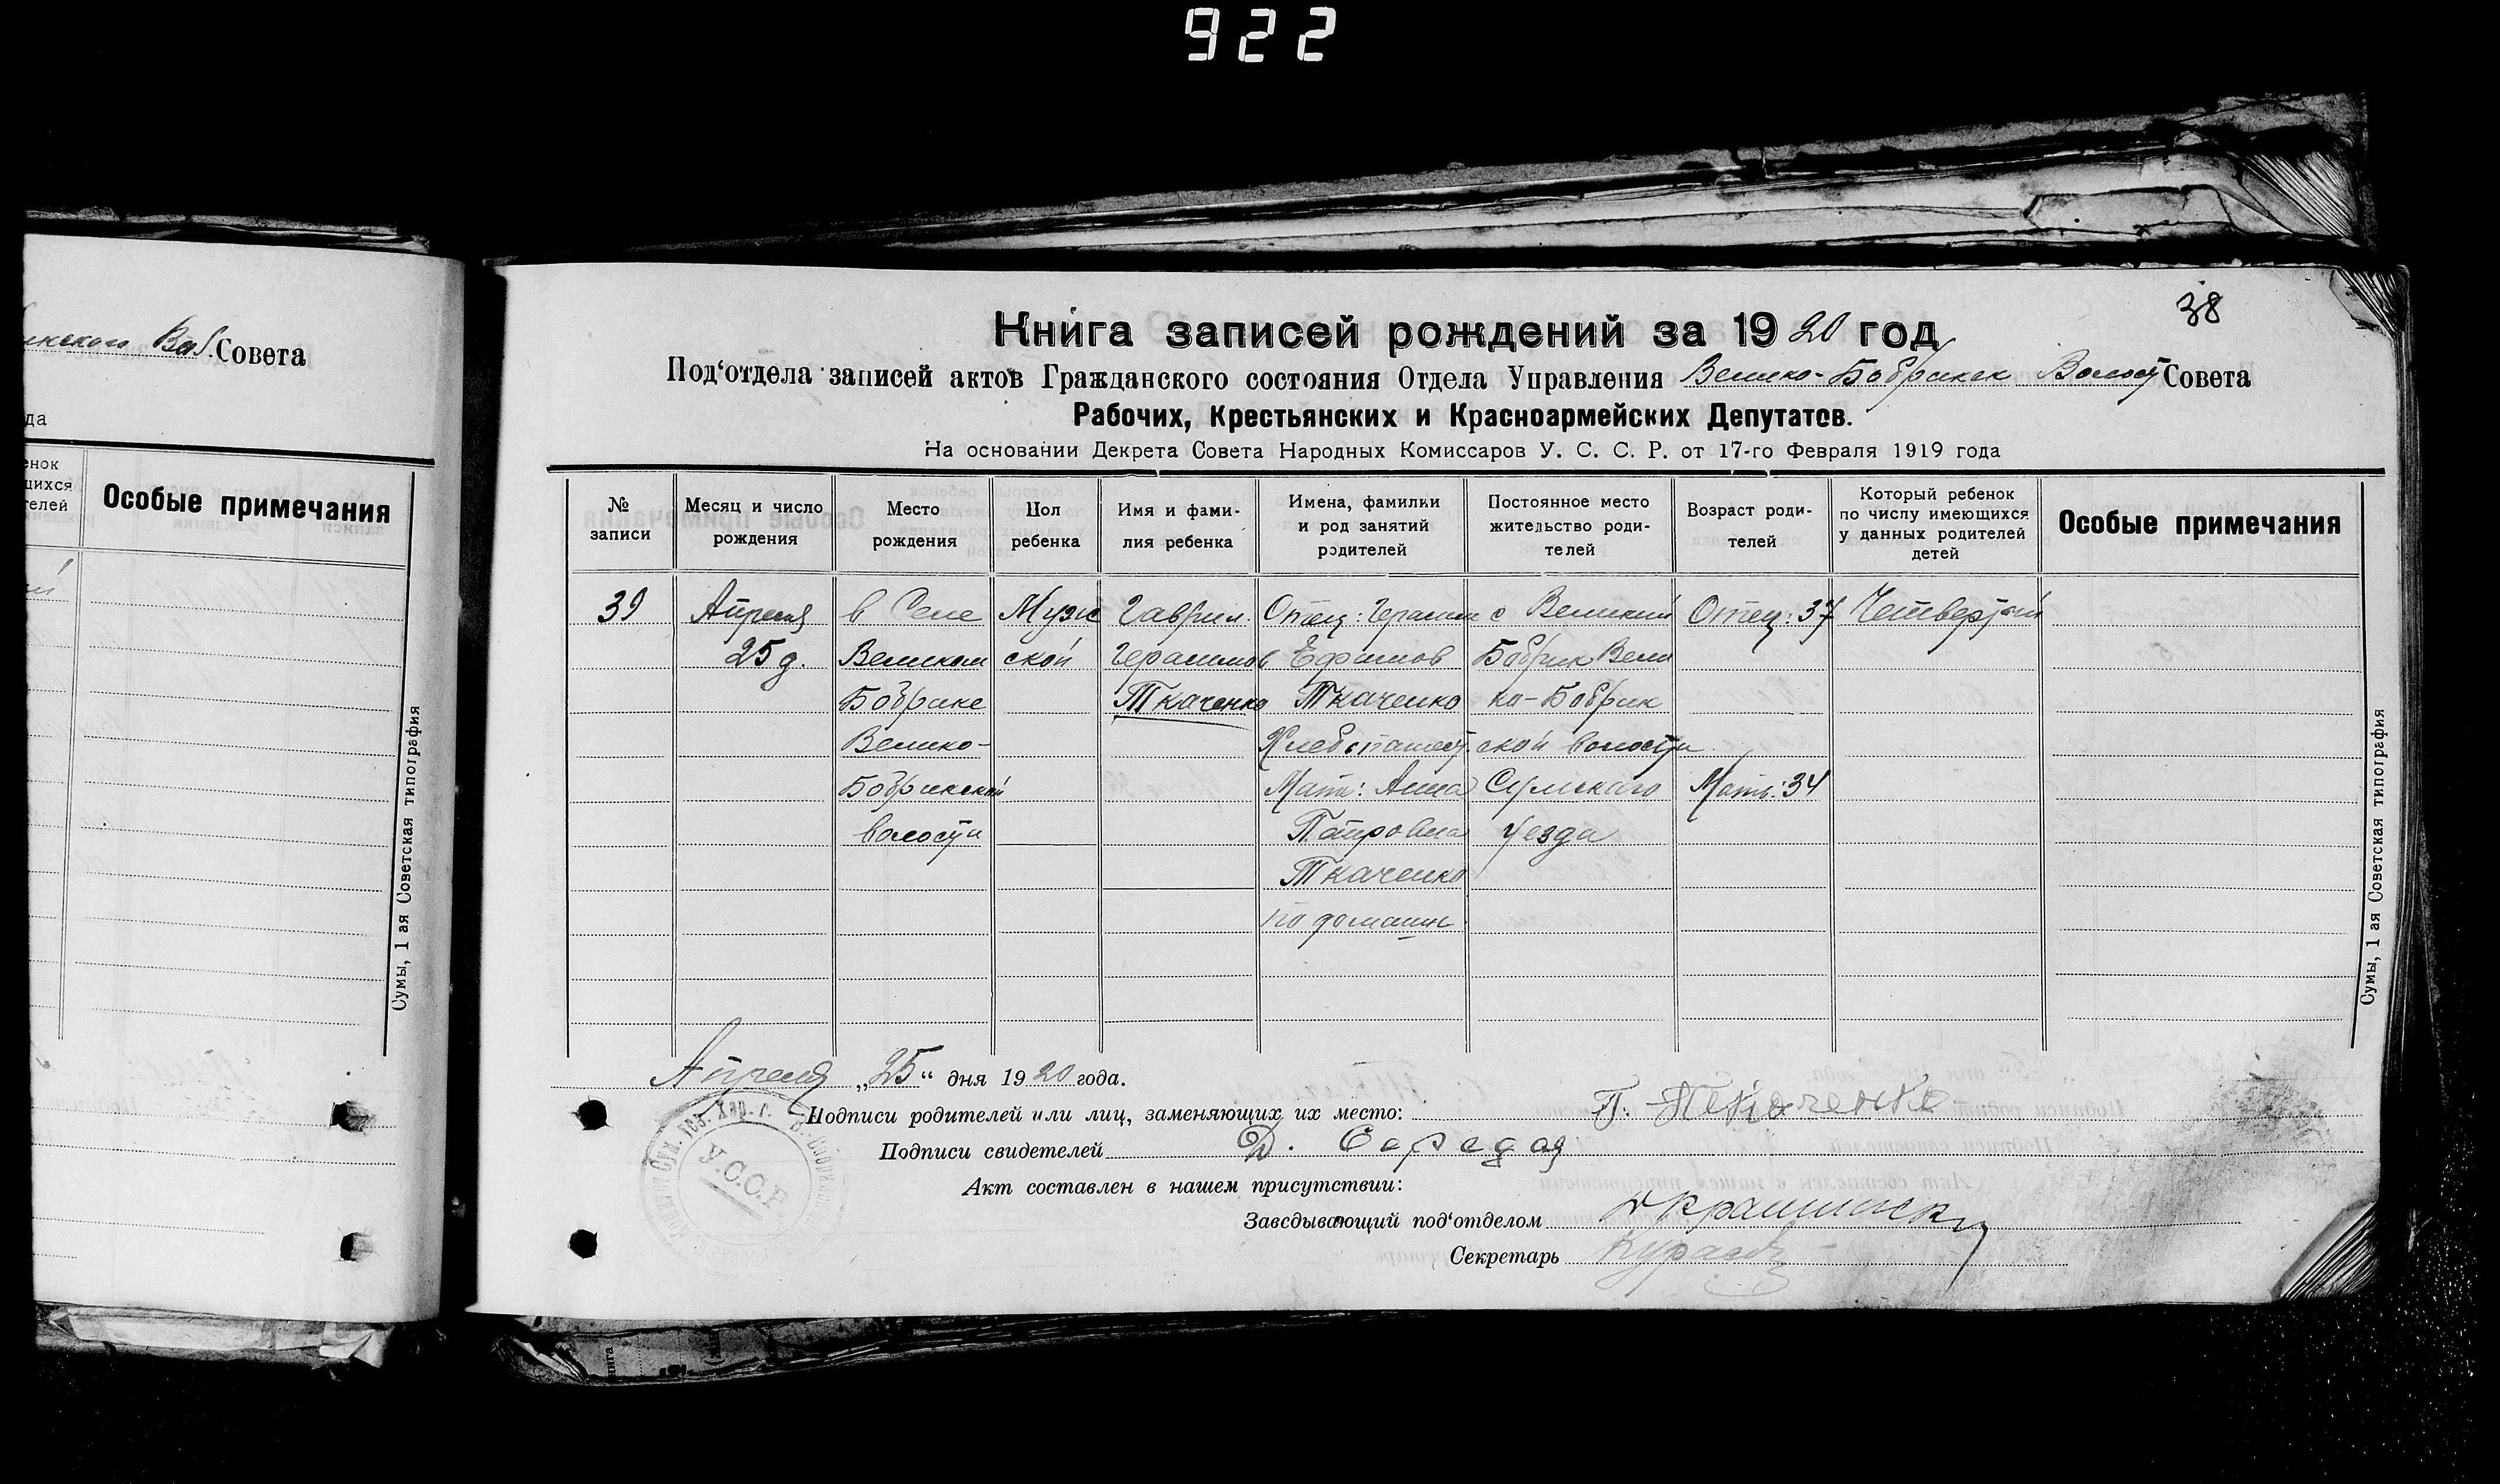 922
38
Вол. Совета
да
енок
щихся
телей
Особые примечания
Сумы, 1 ая Советская типография
Книга записей рождений за 1920 год
Под‘отдела записей актов Гражданского состояния Отдела Управления Велико-Бобрикск Волост Совета
Рабочих, Крестьянских и Красноармейских Депутатов.
На основании Декрета Совета Народных Комиссаров У. С. С. Р. от 17-го Февраля 1919 года
№ записи
Месяц и число рождения
Место рождения
Пол ребенка
Имя и фами-
лия ребенка
Имена, фамилии
и род занятий
родителей
Постоянное место
жительство роди-
телей
Возраст роди-
телей
Который ребенок
по числу имеющихся
у данных родителей
детей
Особые примечания
39
Апреля
25 д.
в Селе
Великом
Бобрике
Велико-
Бобрикской
волости
Муж
ской
Гаврил
Герасимов
Ткаченко
Отец: Герасим
Ефимов
Ткаченко
Хлебопашест.
Мать: Анна
Петровна
Ткаченко
по домашн
с Великий
Бобрик Вели
ко-Бобрик
ской волости
Сумского
уезда
Отец: 37
Мать: 34
Четвертый
Сумы, 1 ая Советская типография
Апреля „25“ дня 1920 года.
Подписи родителей или лиц, заменяющих их место: Ткаченко
Подписи свидетелей Д. Середа
Акт составлен в нашем присутствии:
Заведывающий под‘отделом
Секретарь
У.С.С.Р.